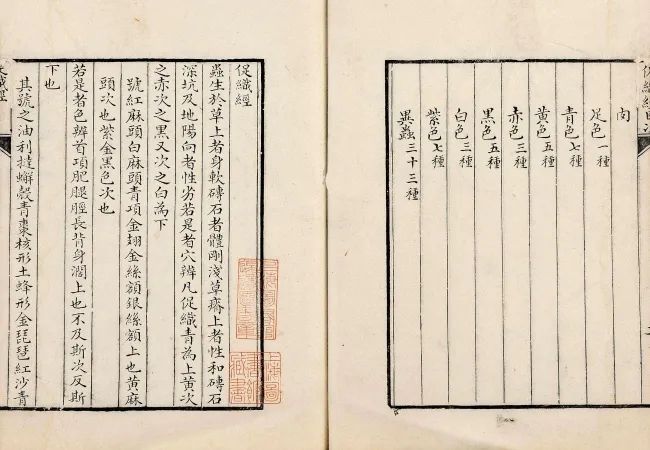 促織經目次
肉
足色一種
青色七種
黃色五種
赤色三種
黑色五種
白色三種
紫色七種
異蟲三十三種
促織經
蟲生於草上者身軟磚石者體剛淺草瘠上者性和磚石
深坑及地陽向者性劣若是者穴辨凡促織青為上黃次
之赤次之黑又次之白為下
號紅麻頭白麻頭青項金翅金絲額銀絲額上也黃麻
頭次也紫金黑色次也
若是者色辨首項肥腿脛長背身濶上也不及斯次反斯
下也
其號之油利撻蠏殼青棗核形土蜂形金琵琶紅沙青
織經